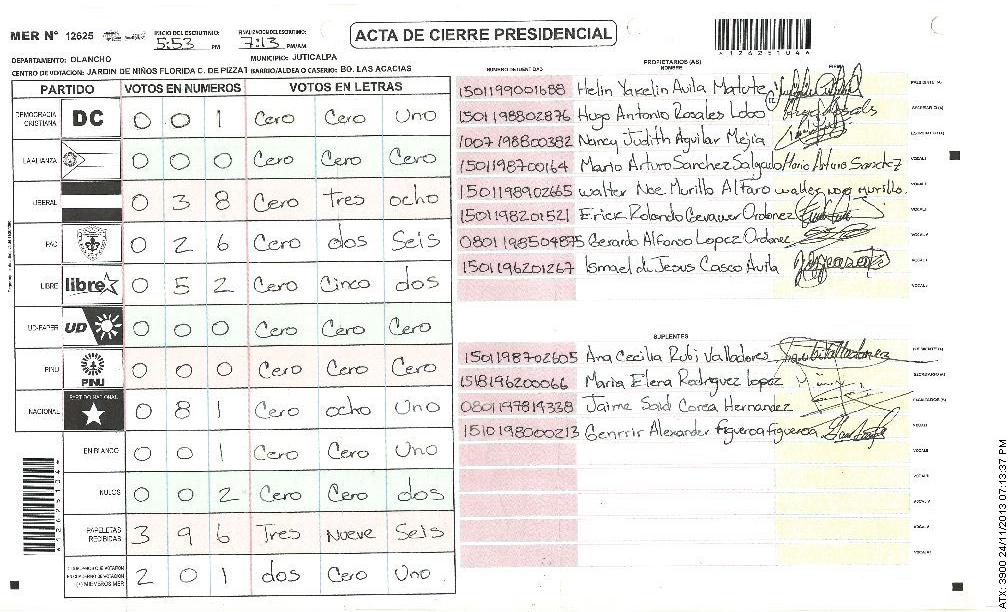 MER Nº 12625
INICIO DEL ESCRUTINIO: 5:53 PM
FINALIZACION DEL ESCRUTINIO: 7:13 PM/AM
ACTA DE CIERRE PRESIDENCIAL
*12625104*
DEPARTAMENTO: OLANCHO
MUNICIPIO: JUTICALPA
CENTRO DE VOTACION: JARDIN DE NIÑOS FLORIDA C. DE PIZZAT BARRIO/ALDEA O CASERIO: BO. LAS ACACIAS
PARTIDO VOTOS EN NUMEROS VOTOS EN LETRAS
DEMOCRACIA CRISTIANA DC 0 0 1 Cero Cero Uno
LA ALIANZA 0 0 0 Cero Cero Cero
LIBERAL 0 3 8 Cero Tres ocho
PAC 0 2 6 Cero dos Seis
LIBRE libre 0 5 2 Cero Cinco dos
UD-FAPER UD 0 0 0 Cero Cero Cero
PINU PINU 0 0 0 Cero Cero Cero
NACIONAL PARTIDO NACIONAL 0 8 1 Cero ocho Uno
EN BLANCO 0 0 1 Cero Cero Uno
NULOS 0 0 2 Cero Cero dos
PAPELETAS RECIBIDAS 3 9 6 Tres Nueve Seis
CIUDADANOS QUE VOTARON EN CUADERNO DE VOTACION (+) MIEMBROS MER 2 0 1 dos Cero Uno
PROPIETARIOS (AS)
NUMERO DE IDENTIDAD NOMBRE FIRMA
1501199001688 Helin Yaxelin Avila Matute PRESIDENTE (A)
1501198802876 Hugo Antonio Rosales Lobo SECRETARIO (A)
1007198800382 Nancy Judith Aguilar Mejia ESCRUTADOR (A)
1501198700164 Mario Arturo Sanchez Salgado Mario Arturo Sanchez VOCAL I
1501198902665 walter Noe Murillo Alfaro walter Noe Murillo.
1501198201521 Erick Rolando Ordonez
0801198504875 Gerardo Alfonso Lopez Ordonez
1501196201267 Ismael de Jesus Casco Avila
SUPLENTES
1501198702605 Ana Cecilia Rubi Valladores PRESIDENTE (A)
1518196200066 Maria Elena Rodriguez lopez SECRETARIO (A)
0801197814338 Jaime Said Corea Hernandez ESCRUTADOR (A)
1510198000213 Genrrir Alexander figueroa figueroa VOCAL I
ATX: 3900 24/11/2013 07:13:37 PM